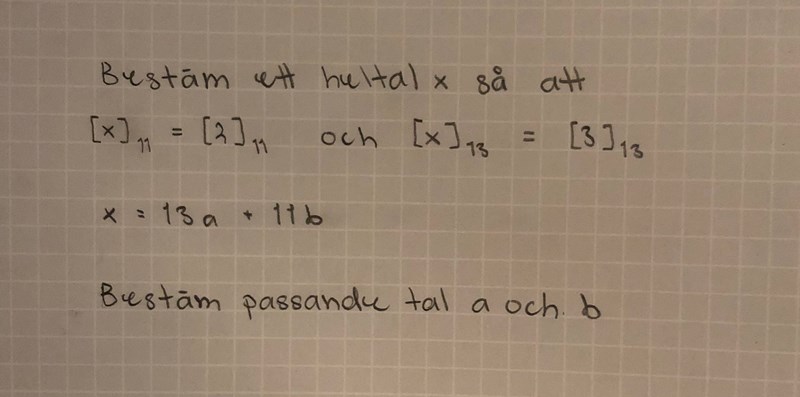 Bestäm ett heltal x så att
[x]₁₁ = [2]₁₁ och [x]₁₃ = [3]₁₃
x = 13a + 11b
Bestäm passande tal a och b